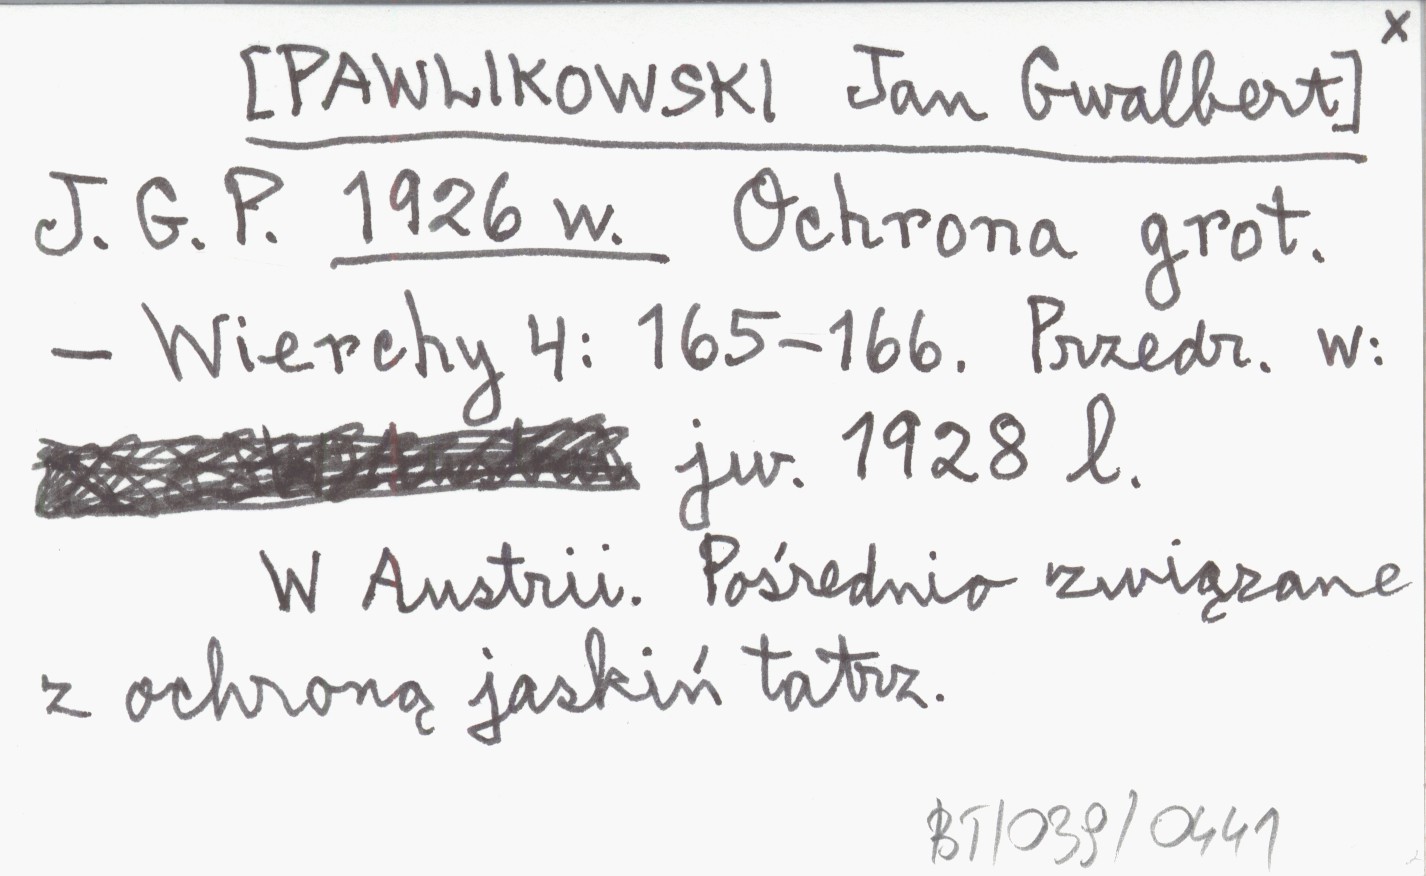 x
[PAWLIKOWSKI Jan Gwalbert]
J. G. P. 1926 w. Ochrona grot.
– Wierchy 4: 165–166. Przedr. w:
jw. 1928 l.
W Austrii. Pośrednio związane
z ochroną jaskiń tatrz.
BT/039/0441